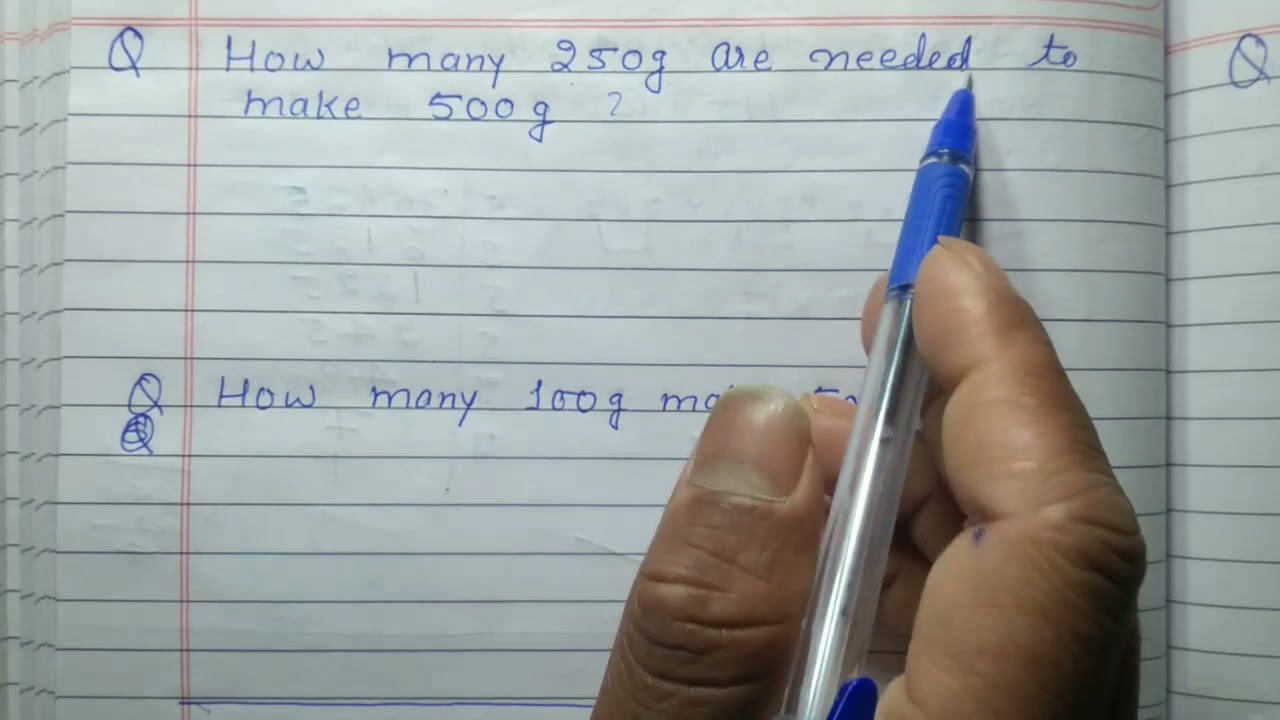 Q How many 250g are needed to
make 500g ?
Q How many 100g
Q